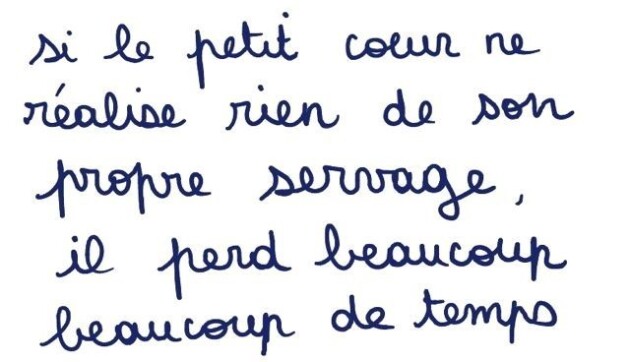 si le petit cœur ne
réalise rien de son
propre servage,
il perd beaucoup
beaucoup de temps